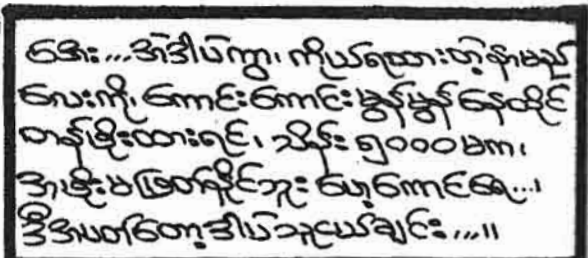 အေး...အဲဒါပဲကွ၊ ကိုယ်ရထားတဲ့နာမည်
လေးကို၊ ကောင်းကောင်းမွန်မွန်နေထိုင်
တန်ဖိုးထားရင်၊ သိန်း ၅၀၀၀ မက၊
အဖိုးမဖြတ်နိုင်ဘူး ဟေ့ကောင်ရေ...၊
ဒီအပတ်တော့ဒါပဲသူငယ်ချင်း...။